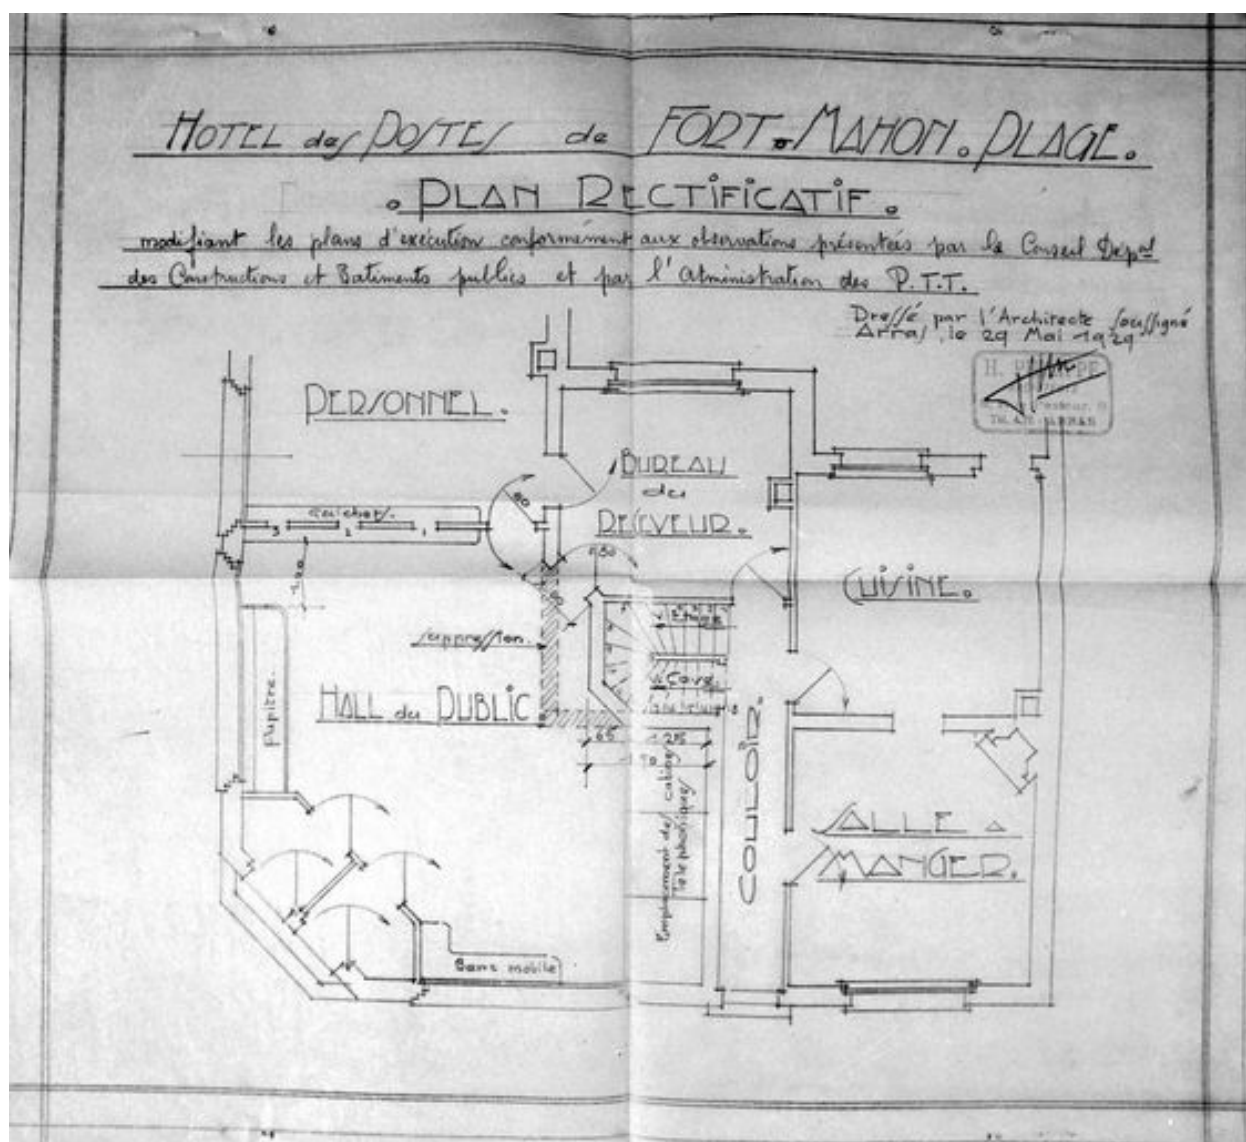 HOTEL des POSTES de FORT-MAHON. PLAGE.
. PLAN RECTIFICATIF .
modifiant les plans d'exécution conformément aux observations présentées par le Conseil Dép^al
des Constructions et Batiments publics et par l'Administration des P.T.T.
Dressé par l'Architecte soussigné
Arras, le 29 Mai 1929
H.
PERSONNEL.
BUREAU
du
RECEVEUR.
Guichets.
3 2 1
80
CUISINE.
1.20
suppression.
Etage
Cave
Pupitre.
HALL du PUBLIC
65 1.25
1.90
Emplacement des cabines
Téléphoniques
COULOIR.
SALLE A
MANGER.
Banc mobile